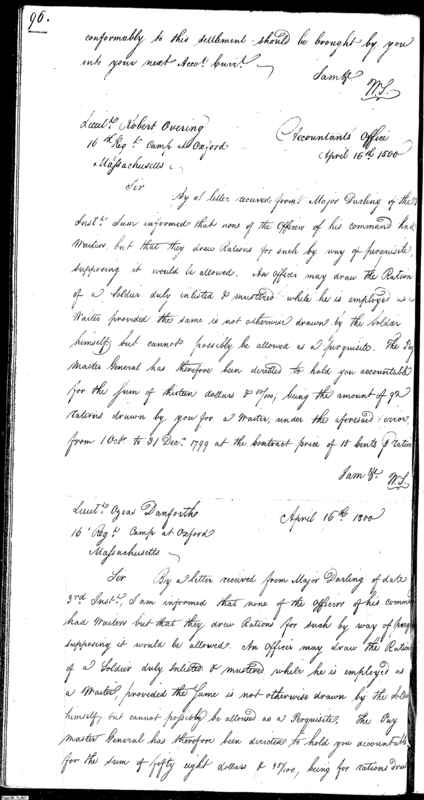 96.
conformably to this settlement should be brought by you
into your next Acco.t Curr.t
I am &c
W.S.
Lieut.t Robert Overing
16th Reg.t Camp at Oxford
Massachusetts
Accountants Office
April 16th 1800
Sir
By a letter received from Major Darling of the 3
Inst.t I am informed that none of the Officers of his command had
Waiters but that they drew Rations for such by way of perquisite,
supposing it would be allowed. An officer may draw the Ration
of a Soldier duly inlisted & mustered while he is employed as a
Waiter provided the same is not otherwise drawn by the Soldier
himself, but cannot possibly be allowed as a perquisite. The Pay
Master General has therefore been directed to hold you accountable
for the Sum of thirteen dollars & 80/100, being the amount of 92
rations drawn by you for a Waiter, under the aforesaid error,
from 1 Oct.r to 31 Dec.r 1799 at the Contract price of 15 Cents p ration
I am &c.
W.S
Lieut.t Ozeas Danforth
April 16th 1800
16 Reg.t Camp at Oxford
Massachusetts
Sir By a letter received from Major Darling of date
3rd Inst.t, I am informed that none of the Officers of his comm
had Waiters but that they drew Rations for such by way of perq
supposing it would be allowed. An Officer may draw the Ration
of a Soldier duly Inlisted & mustered while he is employed as
a Waiter, provided the Same is not otherwise drawn by the Soldier
himself, but cannot possibly be allowed as a Perquisite. The Pay
Master General has therefore been directed to hold you accountable
for the Sum of fifty eight dollars & 95/100, being for rations drawn